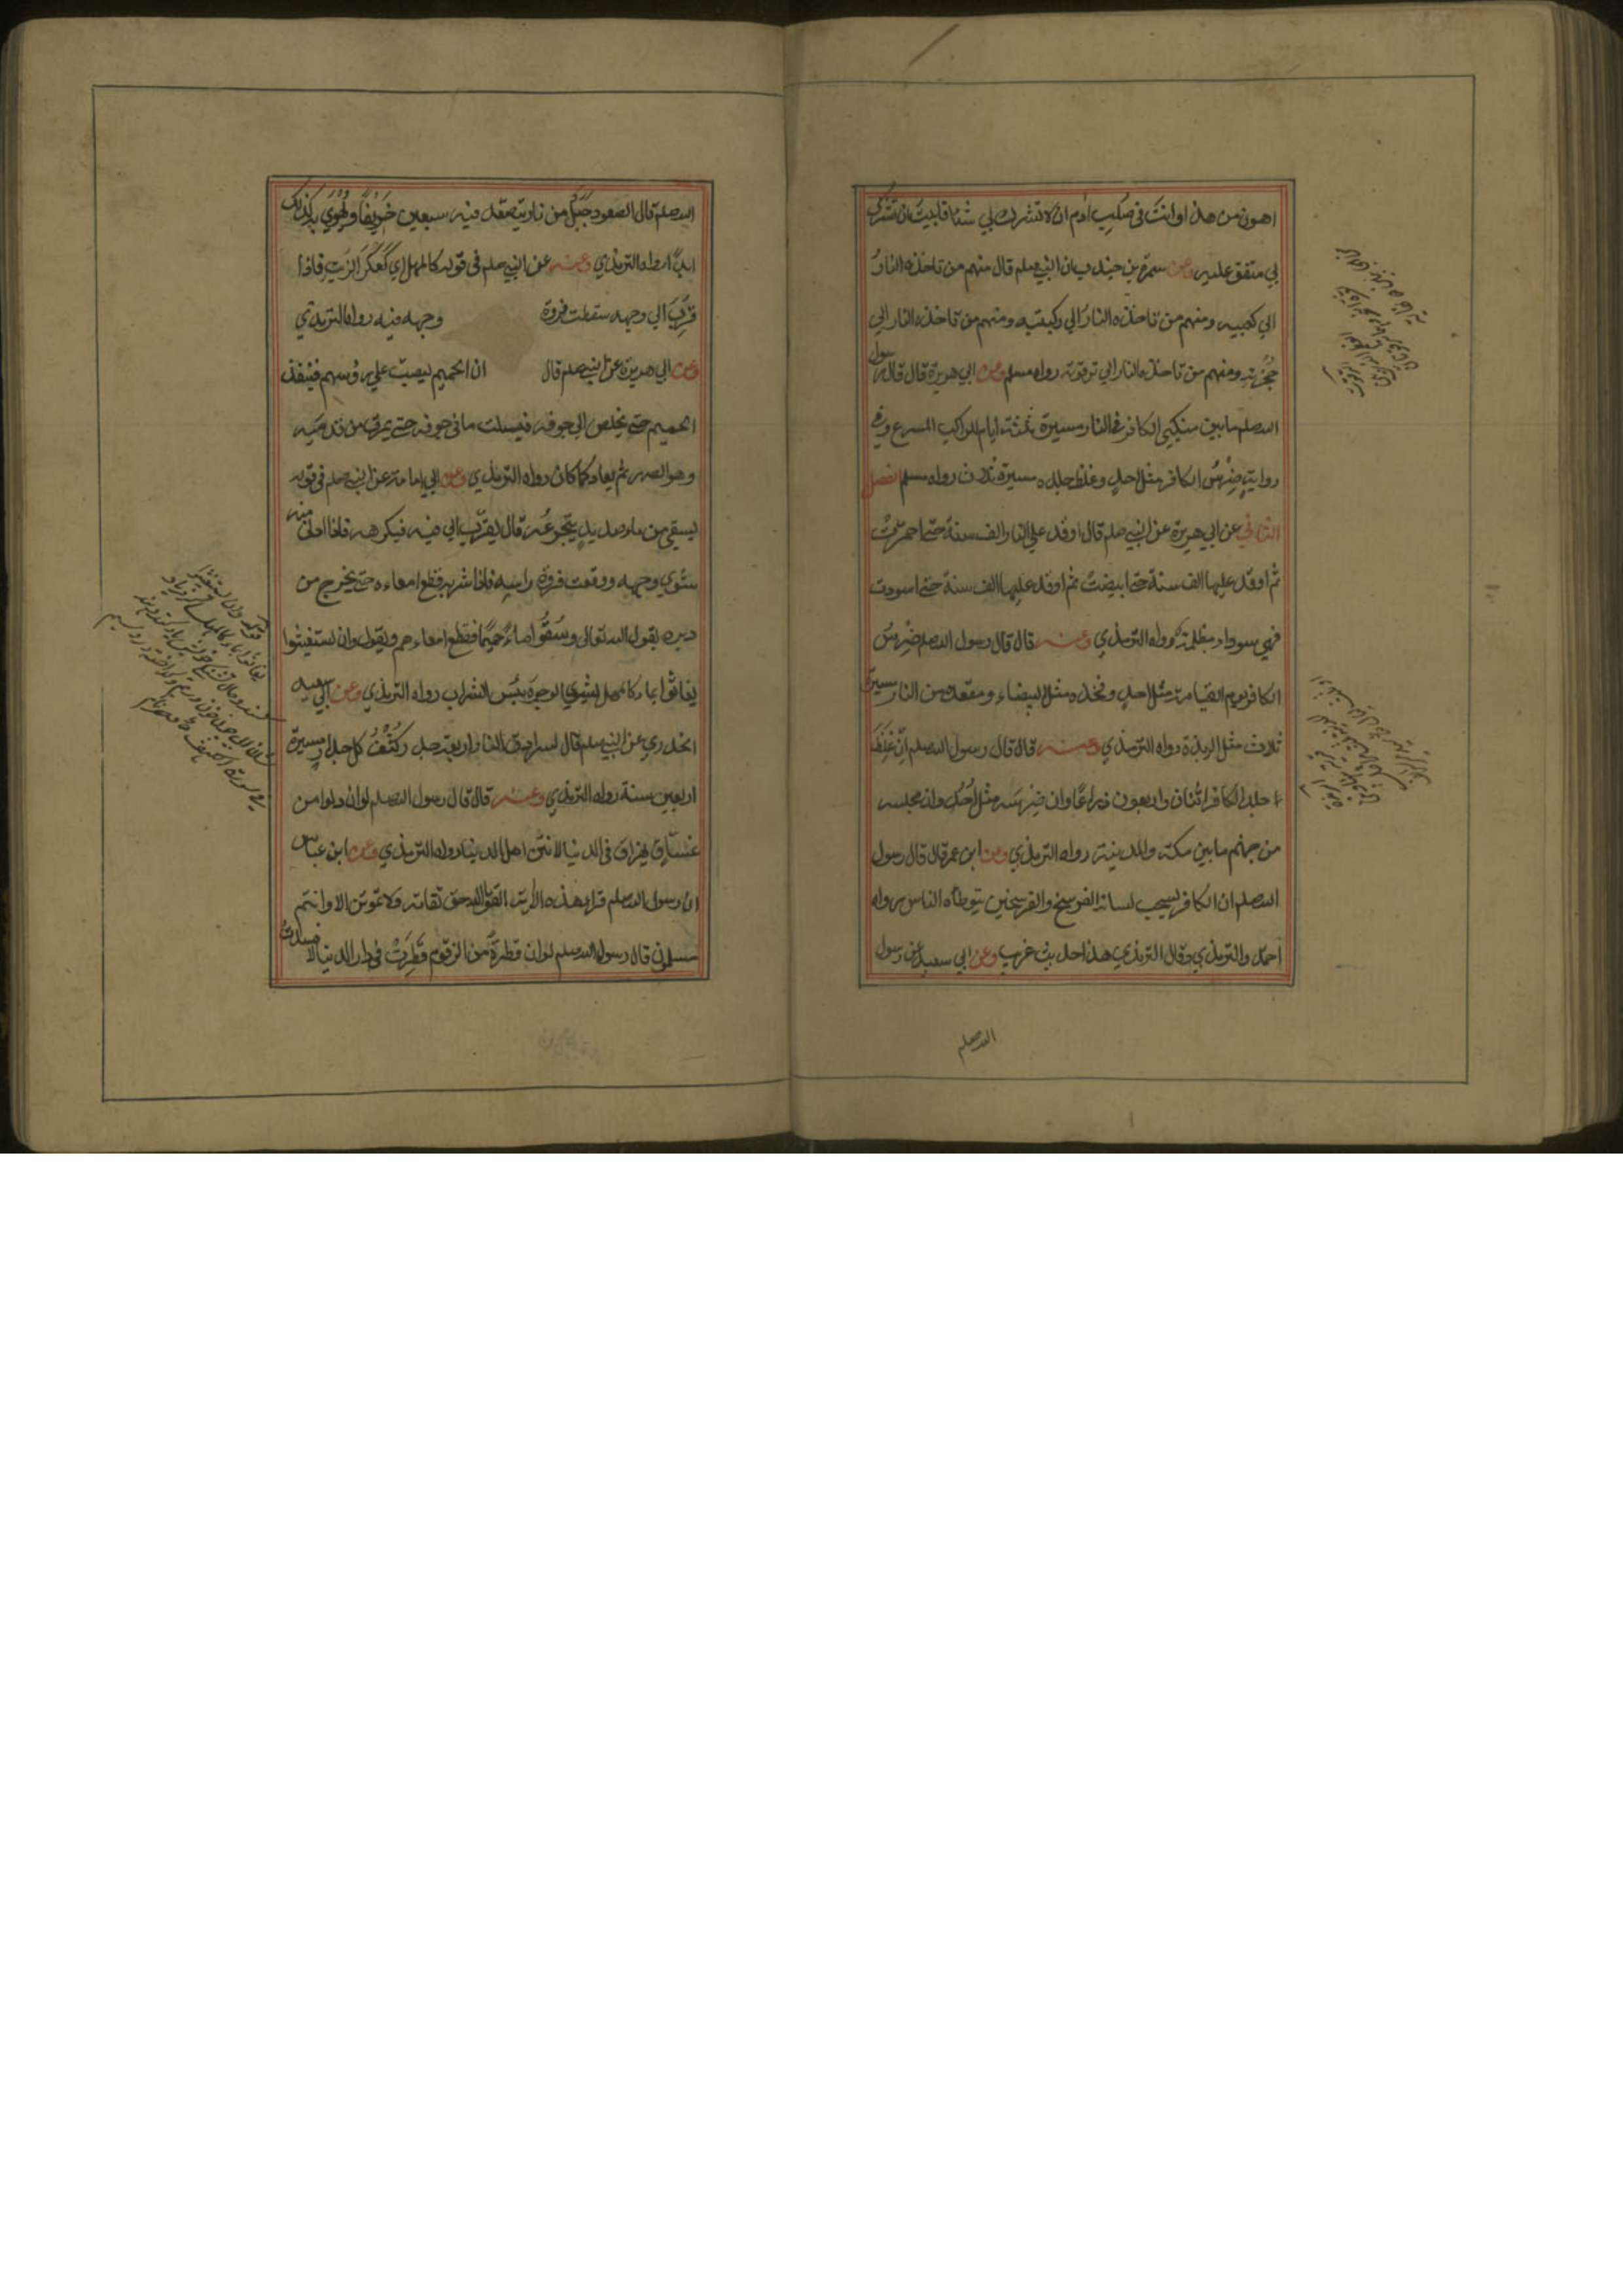 اهون من هذا وانت في صلب ادم ان لا تشرك بي شئا فابيت الا ان تشرك
بي متفق عليه وعن سمرة بن جندب ان النبي صلم قال منهم من تاخذه النارُ
الي كعبيه ومنهم من تاخذه النارُ الي ركبتيه ومنهم من تاخذه النار الي
حُجْزته ومنهم من تاخذه النار الي ترقوته رواه مسلم وعن ابي هريرة قال قال رسول
الله صلم ما بين منكبي الكافر في النار مسيرة ثلثة ايام للراكب المسرع وفي
رواية ضِرْسُ الكافر مثل احدٍ وغلظ جلده مسيرة ثلاث رواه مسلم الفصل
الثاني عن ابي هريرة عن النبي صلم قال اوقد علي النار الف سنة حتي احمرّتْ
ثم اوقد عليها الف سنة حتي ابيضتْ ثم اوقد عليها الف سنة حتي اسودت
فهي سوداء مظلمة رواه الترمذي وعنه قال قال رسول الله صلم ضِرْسُ
الكافر يوم القيامة مثل احدٍ وفخذه مثل البيضاء ومقعده من النار مسيرة
ثلاث مثل الربذة رواه الترمذي وعنه قال قال رسول الله صلم اِنّ غِلَظَ
جلد الكافر اثنان واربعون ذراعًا وان ضِرْسَه مثل اُحُدٍ وان مجلسه
من جهنم ما بين مكة والمدينة رواه الترمذي وعن ابن عمر قال قال رسول
الله صلم ان الكافر ليسحب لسانه الفرسخ والفرسخين يتوطاه الناس رواه
احمد والترمذي وقال الترمذي هذا حديث غريب وعن ابي سعيد عن رسول
الله صلم
الله صلم قال الصعود جَبَلٌ من نار يتصعد فيه سبعين خَرِيفًا ويُهْوٰي به كذلك
ابدًا رواه الترمذي وعنه عن النبي صلم في قوله كالمهل اي كَعَكَرِ الزيت فاذا
قُرِّبَ الي وجهه سقطت فروة وجهه فيه رواه الترمذي
وعن ابي هريرة عن النبي صلم قال ان الحميم ليصبّ علي رؤسهم فينفذ
الحميم حتي يخلص الي جوفه فيسلت ما في جوفه حتي يمرق من قدميه
وهو الصهر ثم يعاد كما كان رواه الترمذي وعن ابي امامة عن النبي صلم في قوله
يسقي من ماء صديدٍ يتجرعُه قال يقرّب الي فيه فيكرهه فاذا ادني منه
شوي وجهه ووقعت فروة راسه فاذا شربه قطع امعاءه حتي يخرج من
دبره يقول الله تعالي وسُقُوا ماءً حَمِيمًا فقطّع امعاءهم ويقول وان يستغيثوا
يغاثوا بماء كالمهل يشوي الوجوهَ بئس الشراب رواه الترمذي وعن ابي سعيد
الخدري عن النبي صلم قال لسرادق النار اربعة جدر كِثَفُ كل جدار مسيرة
اربعين سنة رواه الترمذي وعنه قال قال رسول الله صلم لو ان دلوا من
غسّاقٍ يهراق في الدنيا لانتن اهل الدنيا رواه الترمذي وعن ابن عباس
ان رسول الله صلم قرا هذه الاية اتقوا الله حق تقاته ولا تموتن الا وانتم
مسلمون قال رسول الله صلم لو ان قطرةً من الزقوم قُطِرَتْ في دار الدنيا لافسدتْ